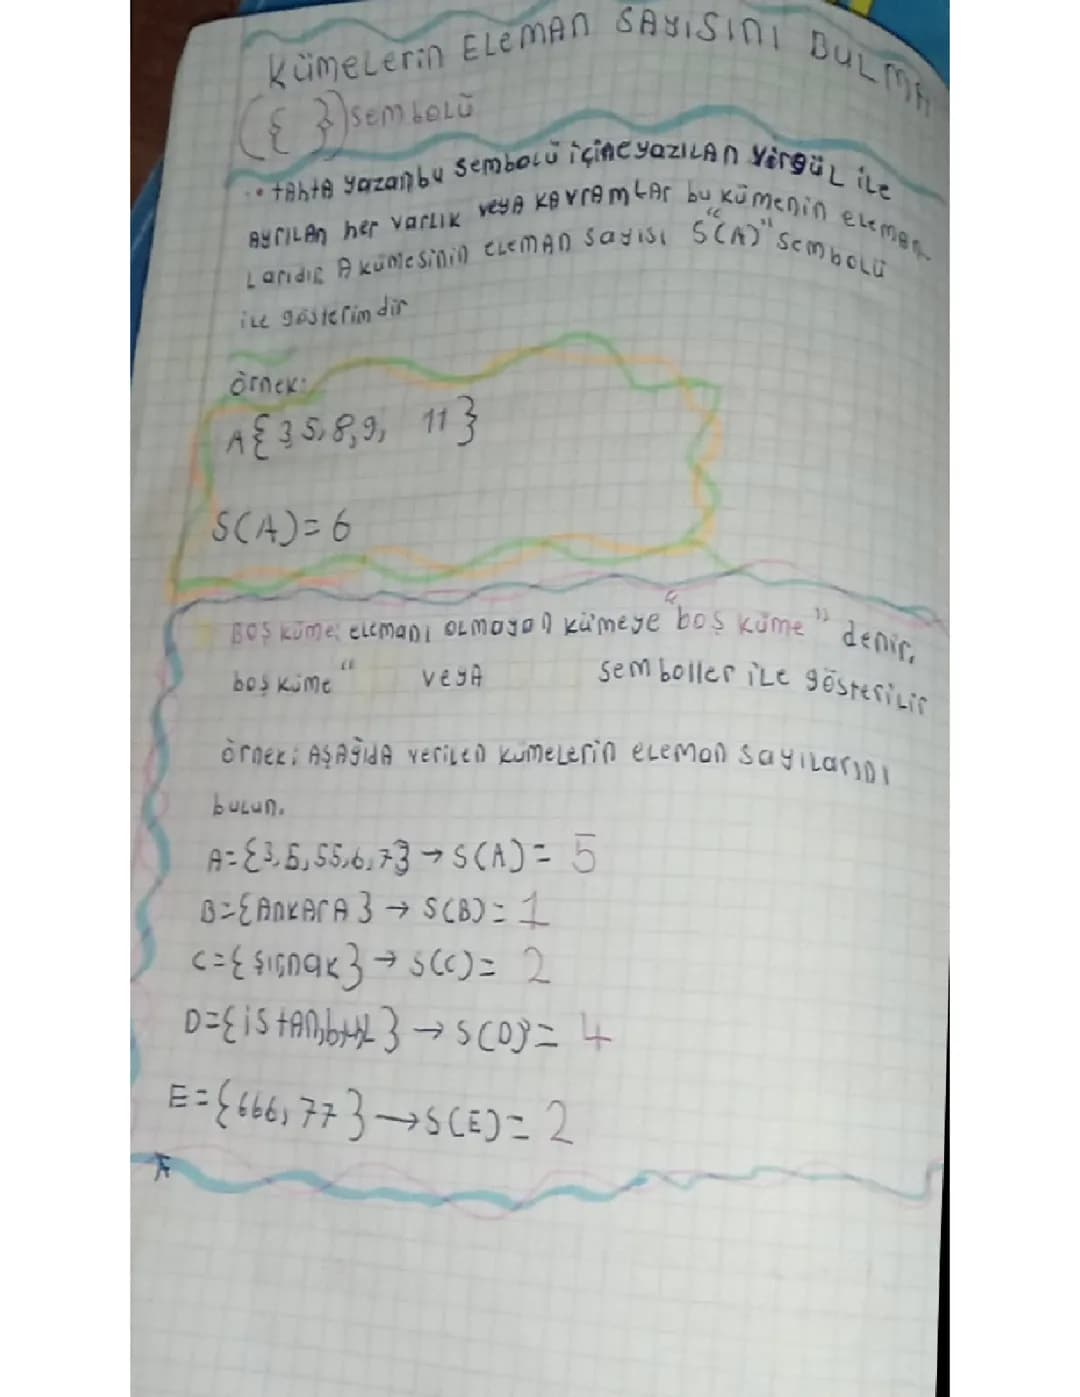 Kümelerin Eleman SAYISINI BULMA
({ }) sembolü
•• tahta yazan bu sembolü içine yazılan virgül ile
ayrılan her varlık veya kavramlar bu kümenin eleman
larıdır A kümesinin eleman sayısı "S(A)" sembolü
ile gösterimdir
örnek:
A{3 5,8,9, 11}
S(A)=6
Boş küme: elemanı olmayan kümeye "boş küme" denir.
boş küme " veya semboller ile gösterilir
örnek: Aşağıda verilen kümelerin eleman sayılarını
bulun.
A={3,5,55,6,7} → S(A)= 5
B={Ankara} → S(B)= 1
C={şıṛnak} → S(C)= 2
D={istan,b,u,l} → S(D)= 4
E={666,77} → S(E)= 2